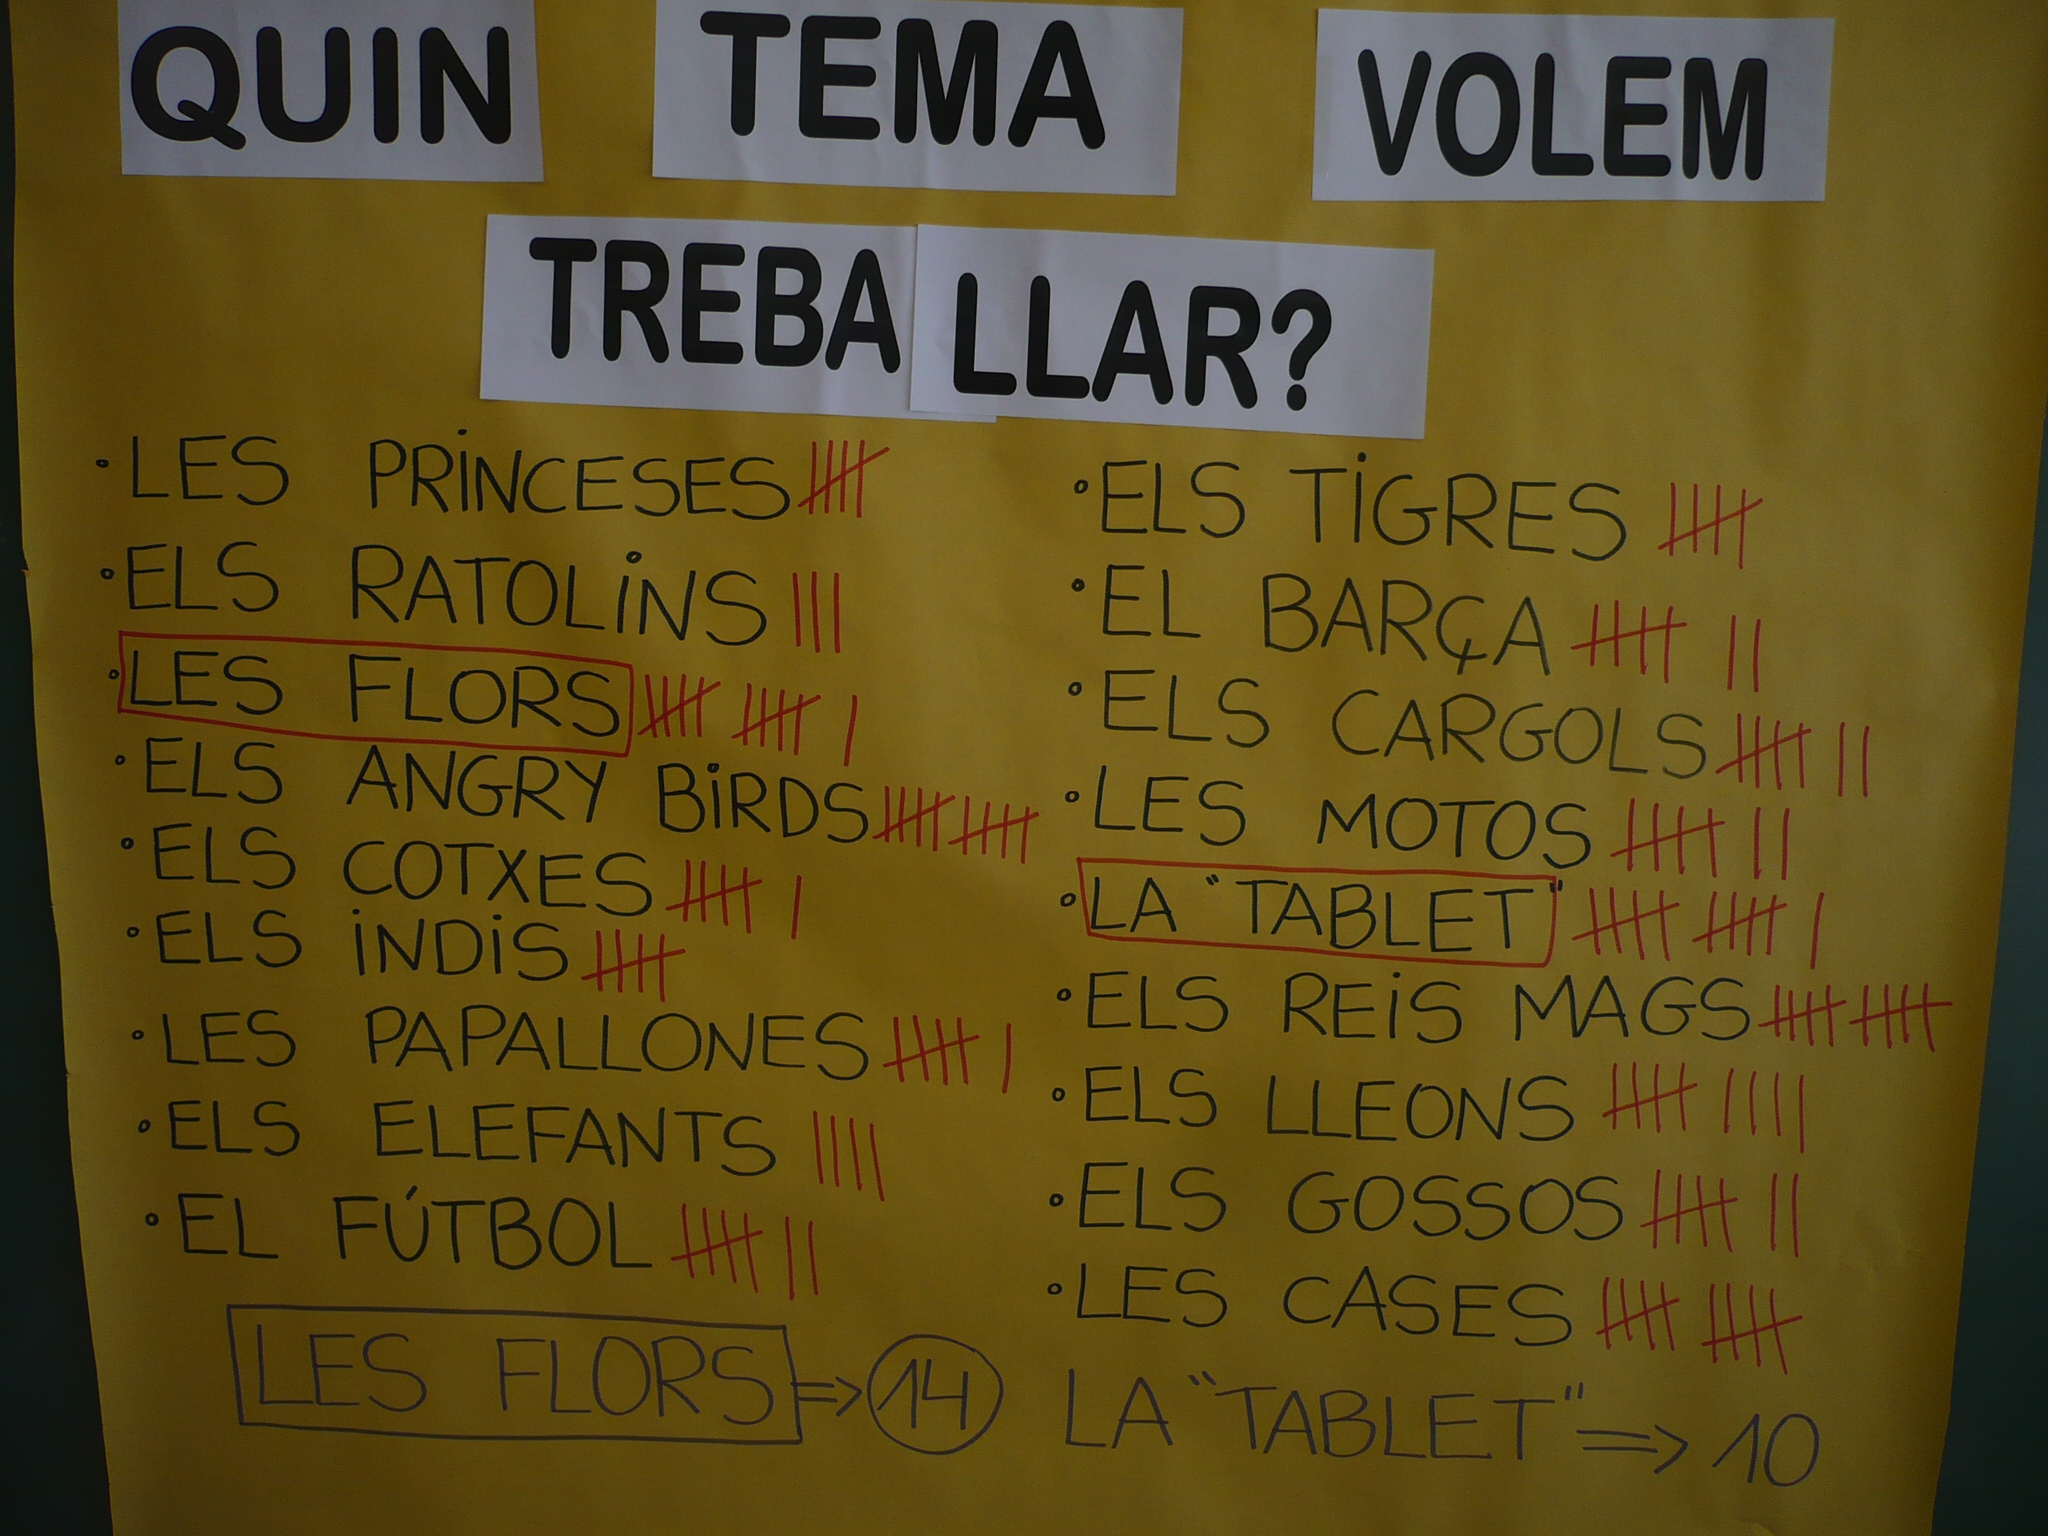 QUIN TEMA VOLEM
TREBALLAR?
• LES PRINCESES
• ELS RATOLINS
• LES FLORS
• ELS ANGRY BIRDS
• ELS COTXES
• ELS INDIS
• LES PAPALLONES
• ELS ELEFANTS
• EL FÚTBOL
• ELS TIGRES
• EL BARÇA
• ELS CARGOLS
• LES MOTOS
• LA "TABLET"
• ELS REIS MAGS
• ELS LLEONS
• ELS GOSSOS
• LES CASES
LES FLORS => 14
LA "TABLET" => 10